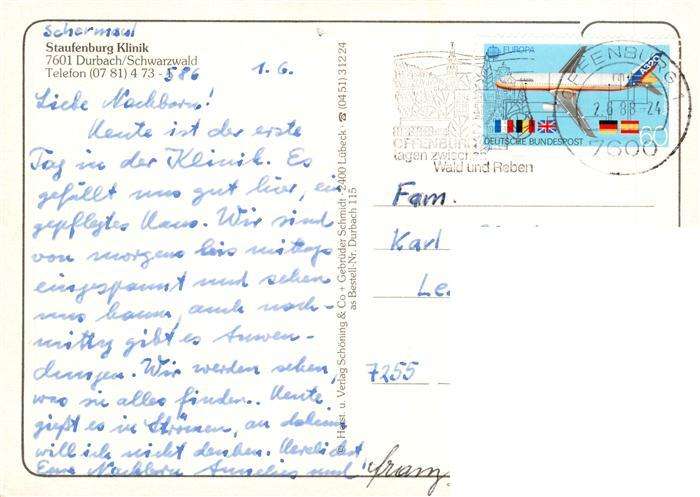 Schermaul
Staufenburg Klinik
7601 Durbach/Schwarzwald
Telefon (07 81) 4 73 - 586 1.6.
Liebe Nachbarn!
Heute ist der erste
Tag in der Klinik. Es
gefällt uns gut hier, ein
gepflegtes Haus. Wir sind
von morgens bis mittags
eingespannt und sehen
uns kaum, auch nach-
mittag gibt es Anwen-
dungen. Wir werden sehen,
was sie alles finden. Heute
gießt es in Strömen, an daheim
will ich nicht denken. Herzlichst
Eure Nachbarn Annelies und Franz
Horst u. Verlag Schöning & Co + Gebrüder Schmidt · 2400 Lübeck · ☎ (04 51) 3 12 24
as Bestell-Nr. Durbach 115
EUROPA
A320
60
DEUTSCHE BUNDESPOST
OFFENBURG
tagen zwischen
Wald und Reben
OFFENBURG 1
2.6.88-24
7600
Fam.
Karl
Le
7255